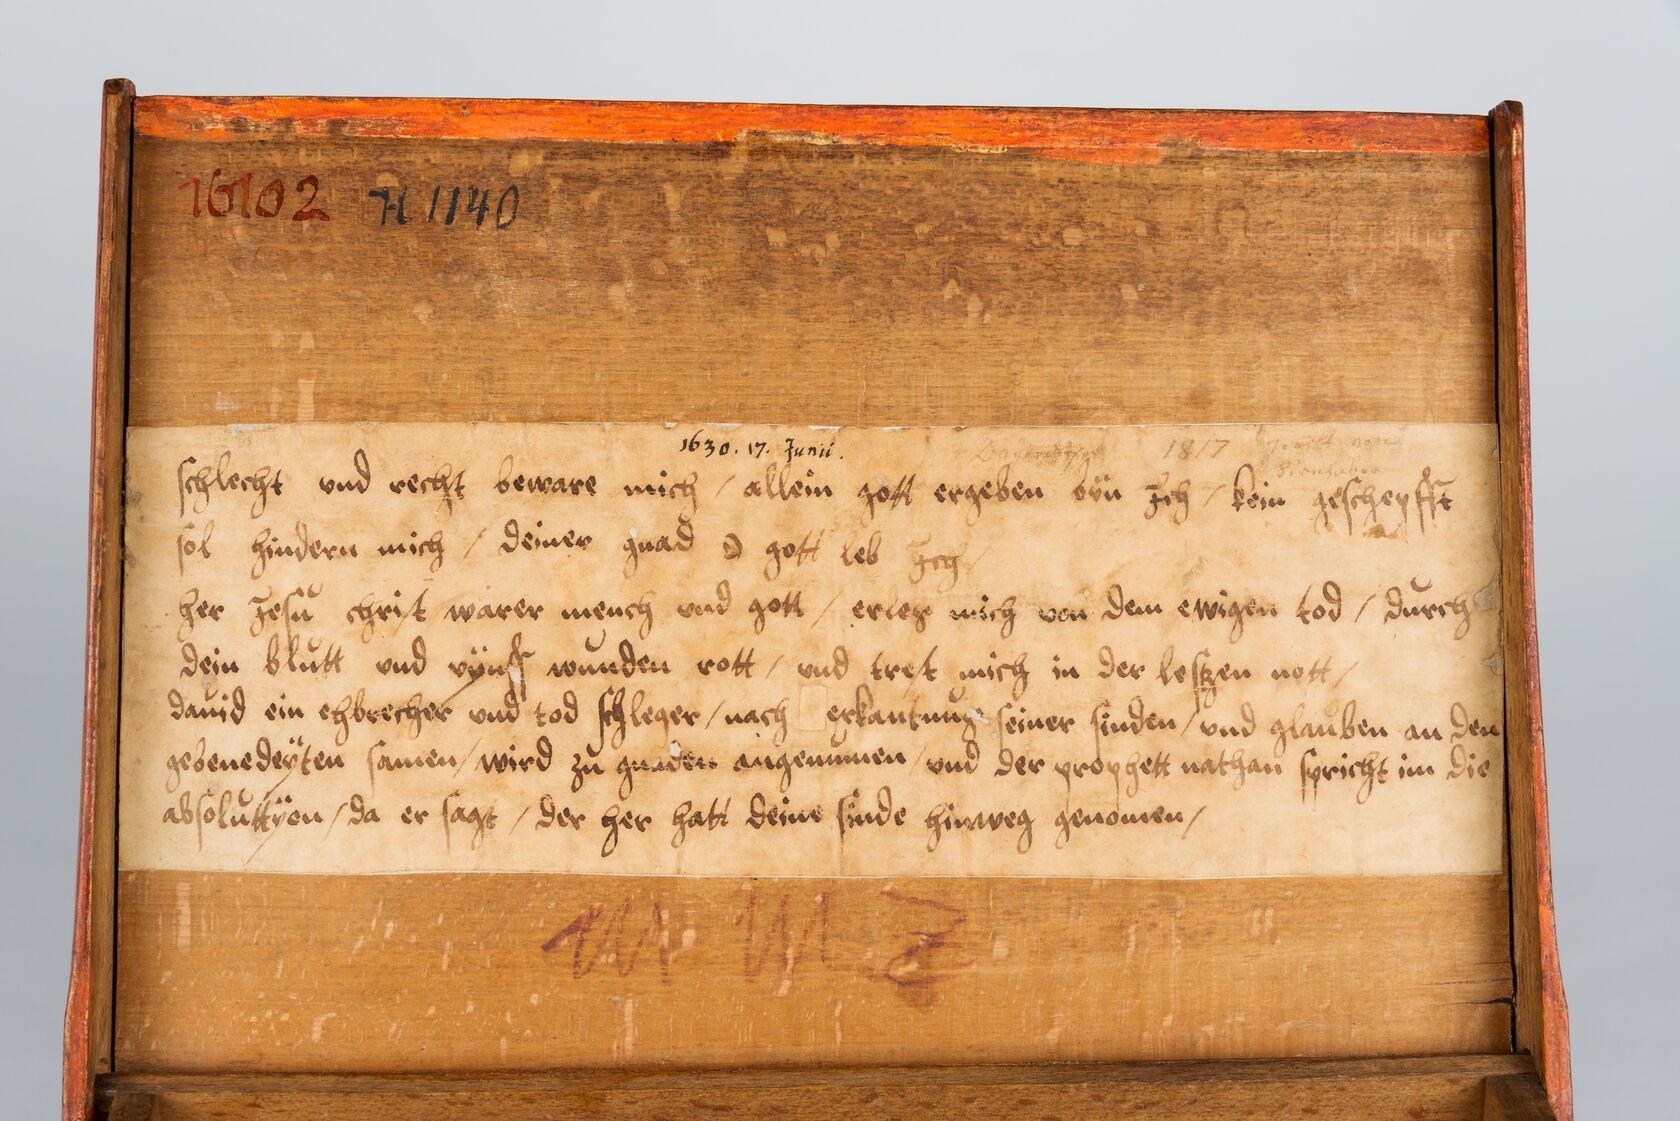 16102 H 1140
1630. 17. Junii.
1817
schlecht und recht beware mich / allein gott ergeben byn Jch / kein geschepfft
sol hindern mich / deiner gnad O gott leb Jch /
her Jesu christ warer mench und gott / erles mich von dem ewigen tod / durch
dein blutt und vÿnff wunden rott / und trest mich in der lesten nott /
dauid ein ehbrecher und tod schleger / nach erkantnus seiner sinden / und glauben an den
gebenedeÿten samen / wird zu gnaden angenumen / und der prophett nathan spricht im die
absoluttÿon / da er sagt / der her hatt deine sinde hinweg genomen /
M M Z